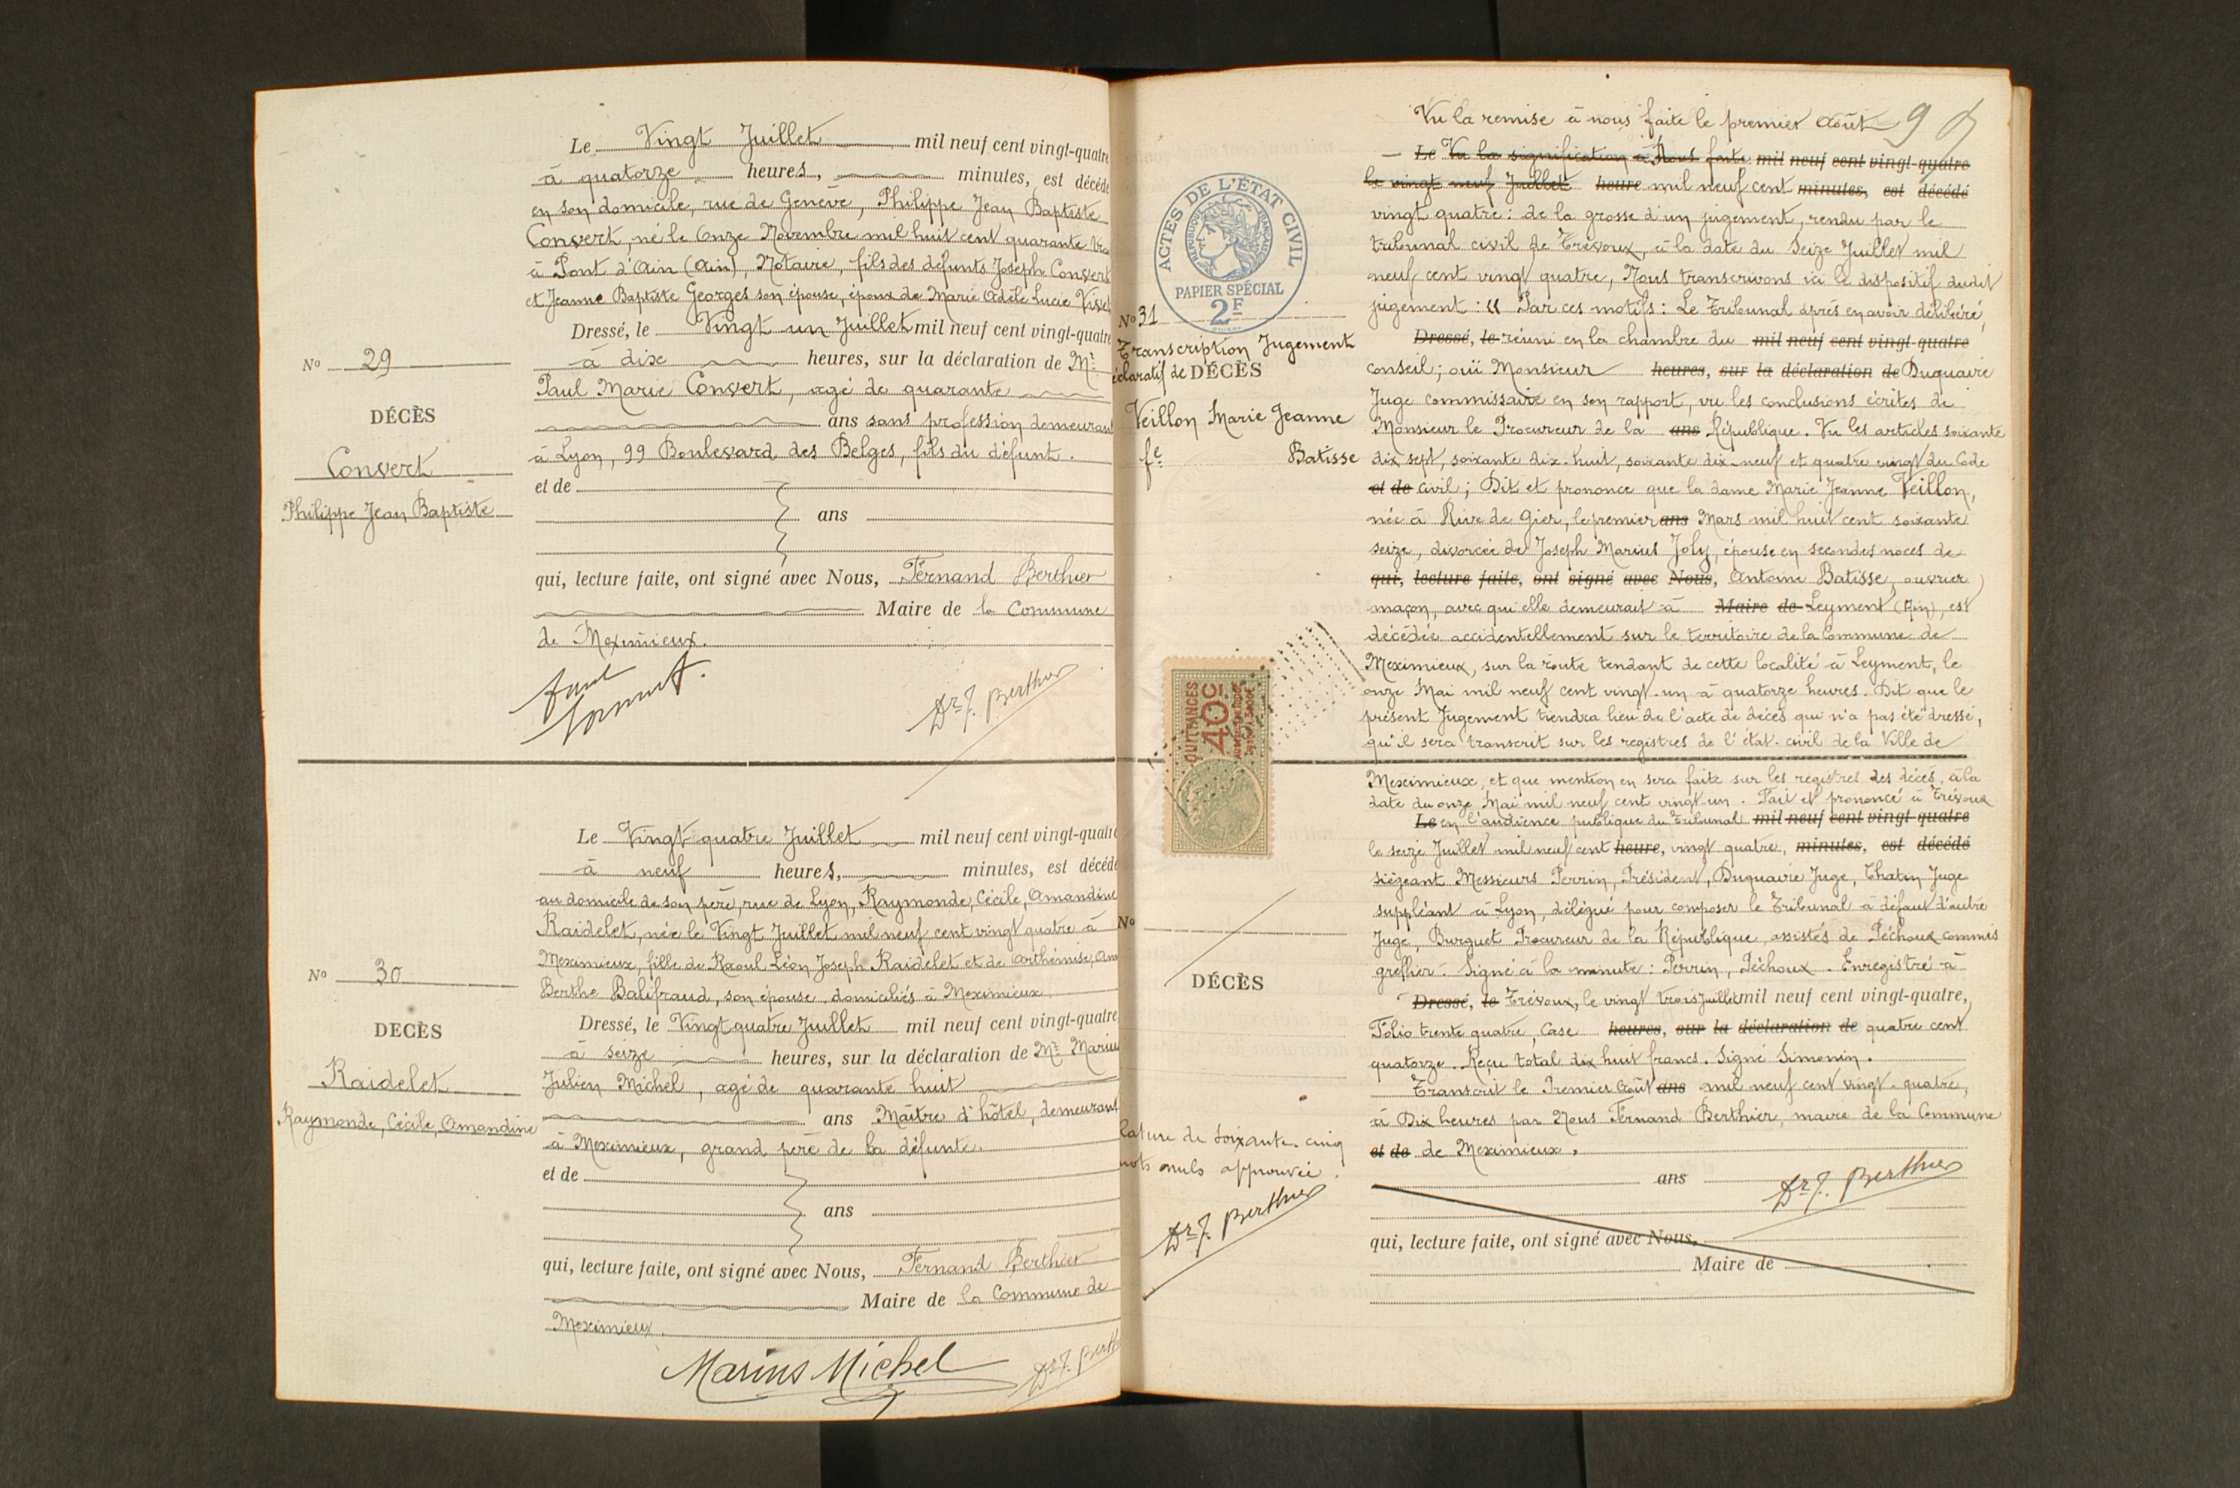 Le Vingt Juillet mil neuf cent vingt-quatre
à quatorze heures, minutes, est décédé
en son domicile, rue de Genève, Philippe Jean Baptiste
Convert, né le Onze Novembre mil huit cent quarante
à Pont d'Ain (Ain), Notaire, fils des défunts Joseph Convert
et Jeanne Baptiste Georges son épouse, époux de Marie Adèle Lucie
Dressé, le Vingt un Juillet mil neuf cent vingt-quatre
à dix heures, sur la déclaration de Mr
Paul Marie Convert, agé de quarante
ans sans profession demeurant
à Lyon, 99 Boulevard des Belges, fils du défunt.
et de
ans
qui, lecture faite, ont signé avec Nous, Fernand Berthier
Maire de la Commune
de Meximieux.
Nº 29
DÉCÈS
Convert
Philippe Jean Baptiste
Paul
Convert.
Dr F. Berthier
Le Vingt quatre Juillet mil neuf cent vingt-quatre
à neuf heures, minutes, est décédé
au domicile de son père, rue de Lyon, Raymonde, Cécile, Amandine
Raidelet, née le Vingt Juillet mil neuf cent vingt quatre à
Meximieux, fille de Raoul Léon Joseph Raidelet et de Arthémise,
Berthe Balifraud, son épouse, domiciliés à Meximieux
Dressé, le Vingt quatre Juillet mil neuf cent vingt-quatre
à seize heures, sur la déclaration de Mr Marius
Julien Michel, agé de quarante huit
ans Maître d'hôtel, demeurant
à Meximieux, grand père de la défunte.
et de
ans
qui, lecture faite, ont signé avec Nous, Fernand Berthier
Maire de la Commune de
Meximieux.
Nº 30
DÉCÈS
Raidelet
Raymonde, Cécile, Amandine
Marius Michel
Dr F. Berth
ACTES DE L'ÉTAT CIVIL
RÉPUBLIQUE FRANÇAISE
PAPIER SPÉCIAL
2F
Nº 31
Transcription Jugement
éclaratif de DÉCÈS
Veillon Marie Jeanne
fe Batisse
QUITTANCES
40c
Nº
DÉCÈS
lature de soixante-cinq
mots nuls approuvée.
Dr F. Berthier
Vu la remise à nous faite le premier Août 9
Le Vu la signification à Nous faite mil neuf cent vingt-quatre
le vingt neuf Juillet heure mil neuf cent minutes, est décédé
vingt quatre: de la grosse d'un jugement, rendu par le
tribunal civil de Trévoux, à la date du Seize Juillet mil
neuf cent vingt quatre, Nous transcrivons ici le dispositif dudit
jugement: « Par ces motifs: Le Tribunal après en avoir délibéré,
Dressé, le réuni en la chambre du mil neuf cent vingt-quatre
conseil; ouï Monsieur heures, sur la déclaration de Duquaire
Juge commissaire en son rapport, vu les conclusions écrites de
Monsieur le Procureur de la ans République. Vu les articles soixante
dix sept, soixante dix-huit, soixante dix-neuf et quatre vingt du Code
et de Civil; Dit et prononce que la dame Marie Jeanne Veillon,
née à Rive de Gier, le premier ans Mars mil huit cent soixante
seize, divorcée de Joseph Marius Joly, épouse en secondes noces de
qui, lecture faite, ont signé avec Nous, Antoine Batisse, ouvrier
maçon, avec qui elle demeurait à Maire de Leyment (Ain), est
décédée accidentellement sur le territoire de la Commune de
Meximieux, sur la route tendant de cette localité à Leyment, le
onze Mai mil neuf cent vingt-un à quatorze heures. Dit que le
présent Jugement tiendra lieu de l'acte de décès qui n'a pas été dressé,
qu'il sera transcrit sur les registres de l'état-civil de la Ville de
Meximieux, et que mention en sera faite sur les registres des décès, à la
date du onze Mai mil neuf cent vingt-un. Fait et prononcé à Trévoux
Le en l'audience publique du Tribunal mil neuf cent vingt-quatre
le seize Juillet mil neuf cent heure, vingt quatre, minutes, est décédé
siégeant Messieurs Perrin, Président, Duquaire Juge, Chatin Juge
suppléant à Lyon, délégué pour composer le Tribunal à défaut d'autre
Juge, Burguet Procureur de la République, assistés de Péchoux commis
greffier. Signé à la minute: Perrin, Péchoux. Enregistré à
Dressé, le Trévoux, le vingt trois Juillet mil neuf cent vingt-quatre,
Folio trente quatre, Case heures, sur la déclaration de quatre cent
quatorze. Reçu total dix huit francs. Signé Simonin.
Transcrit le Premier Août ans mil neuf cent vingt-quatre,
à Dix heures par Nous Fernand Berthier, maire de la Commune
et de de Meximieux.
ans
Dr F. Berthier
qui, lecture faite, ont signé avec Nous,
Maire de